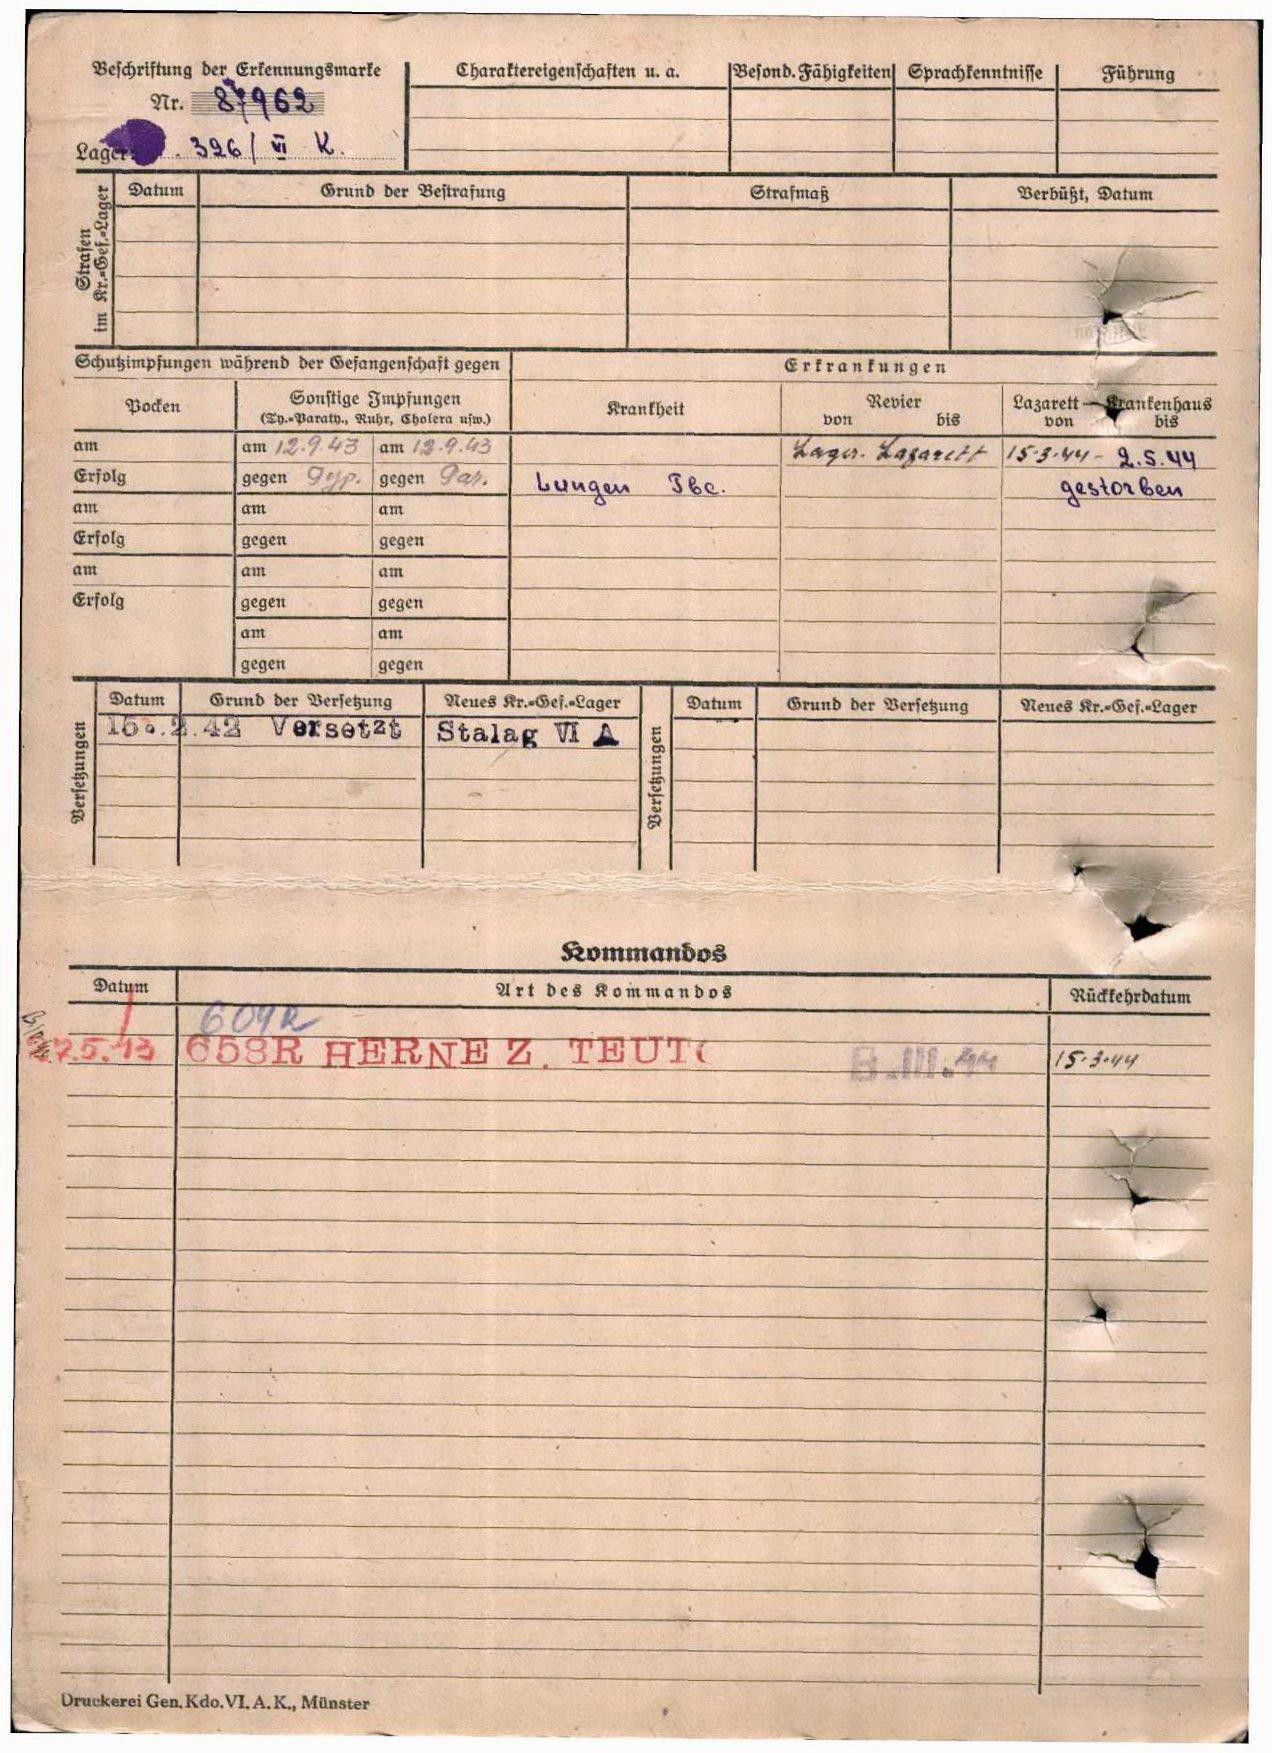 Beschriftung der Erkennungsmarke
Nr. 87962
Lager: 326/ VI K.
Charaktereigenschaften u. a.
Besond. Fähigkeiten
Sprachkenntnisse
Führung
Strafen
im Kr.=Gef.=Lager
Datum
Grund der Bestrafung
Strafmaß
Verbüßt, Datum
Schutzimpfungen während der Gefangenschaft gegen
Erkrankungen
Pocken
Sonstige Impfungen
(Ty.=Paraty., Ruhr, Cholera usw.)
Krankheit
Revier
von bis
Lazarett — Krankenhaus
von bis
am am 12.9.43 am 12.9.43 Lager. Lazarett 15.3.44 - 2.5.44
Erfolg gegen gegen Par. Lungen Tbc. gestorben
am am am
Erfolg gegen gegen
am am am
Erfolg gegen gegen
am am
gegen gegen
Versetzungen
Datum Grund der Versetzung Neues Kr.=Gef.=Lager
15.2.42 Versetzt Stalag VI A
Versetzungen
Datum Grund der Versetzung Neues Kr.=Gef.=Lager
Kommandos
Datum Art des Kommandos Rückkehrdatum
609R
7.5.43 658R HERNE Z. TEUT 8.III.44 15.3.44
Druckerei Gen. Kdo. VI. A. K., Münster